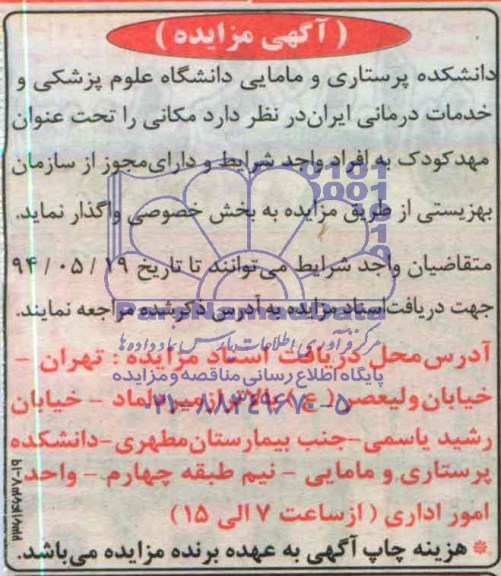 ( آگهی مزایده )
دانشکده پرستاری و مامایی دانشگاه علوم پزشکی و
خدمات درمانی ایران در نظر دارد مکانی را تحت عنوان
مهدکودک به افراد واجد شرایط و دارای مجوز از سازمان
بهزیستی از طریق مزایده به بخش خصوصی واگذار نماید.
متقاضیان واجد شرایط می توانند تا تاریخ ۱۹ / ۰۵ / ۹۴
جهت دریافت اسناد مزایده به آدرس ذکرشده مراجعه نمایند.
ParsNamadData
مرکز فرآوری اطلاعات پارس نماد داده ها
آدرس محل دریافت اسناد مزایده : تهران -
پایگاه اطلاع رسانی مناقصه و مزایده
خیابان ولیعصر ( ع ) میرداماد - خیابان
۰۲۱-۸۸۳۴۹۶۷۰-۵
رشید یاسمی-جنب بیمارستان مطهری-دانشکده
پرستاری و مامایی - نیم طبقه چهارم - واحد
امور اداری ( از ساعت ۷ الی ۱۵ )
* هزینه چاپ آگهی به عهده برنده مزایده می باشد.